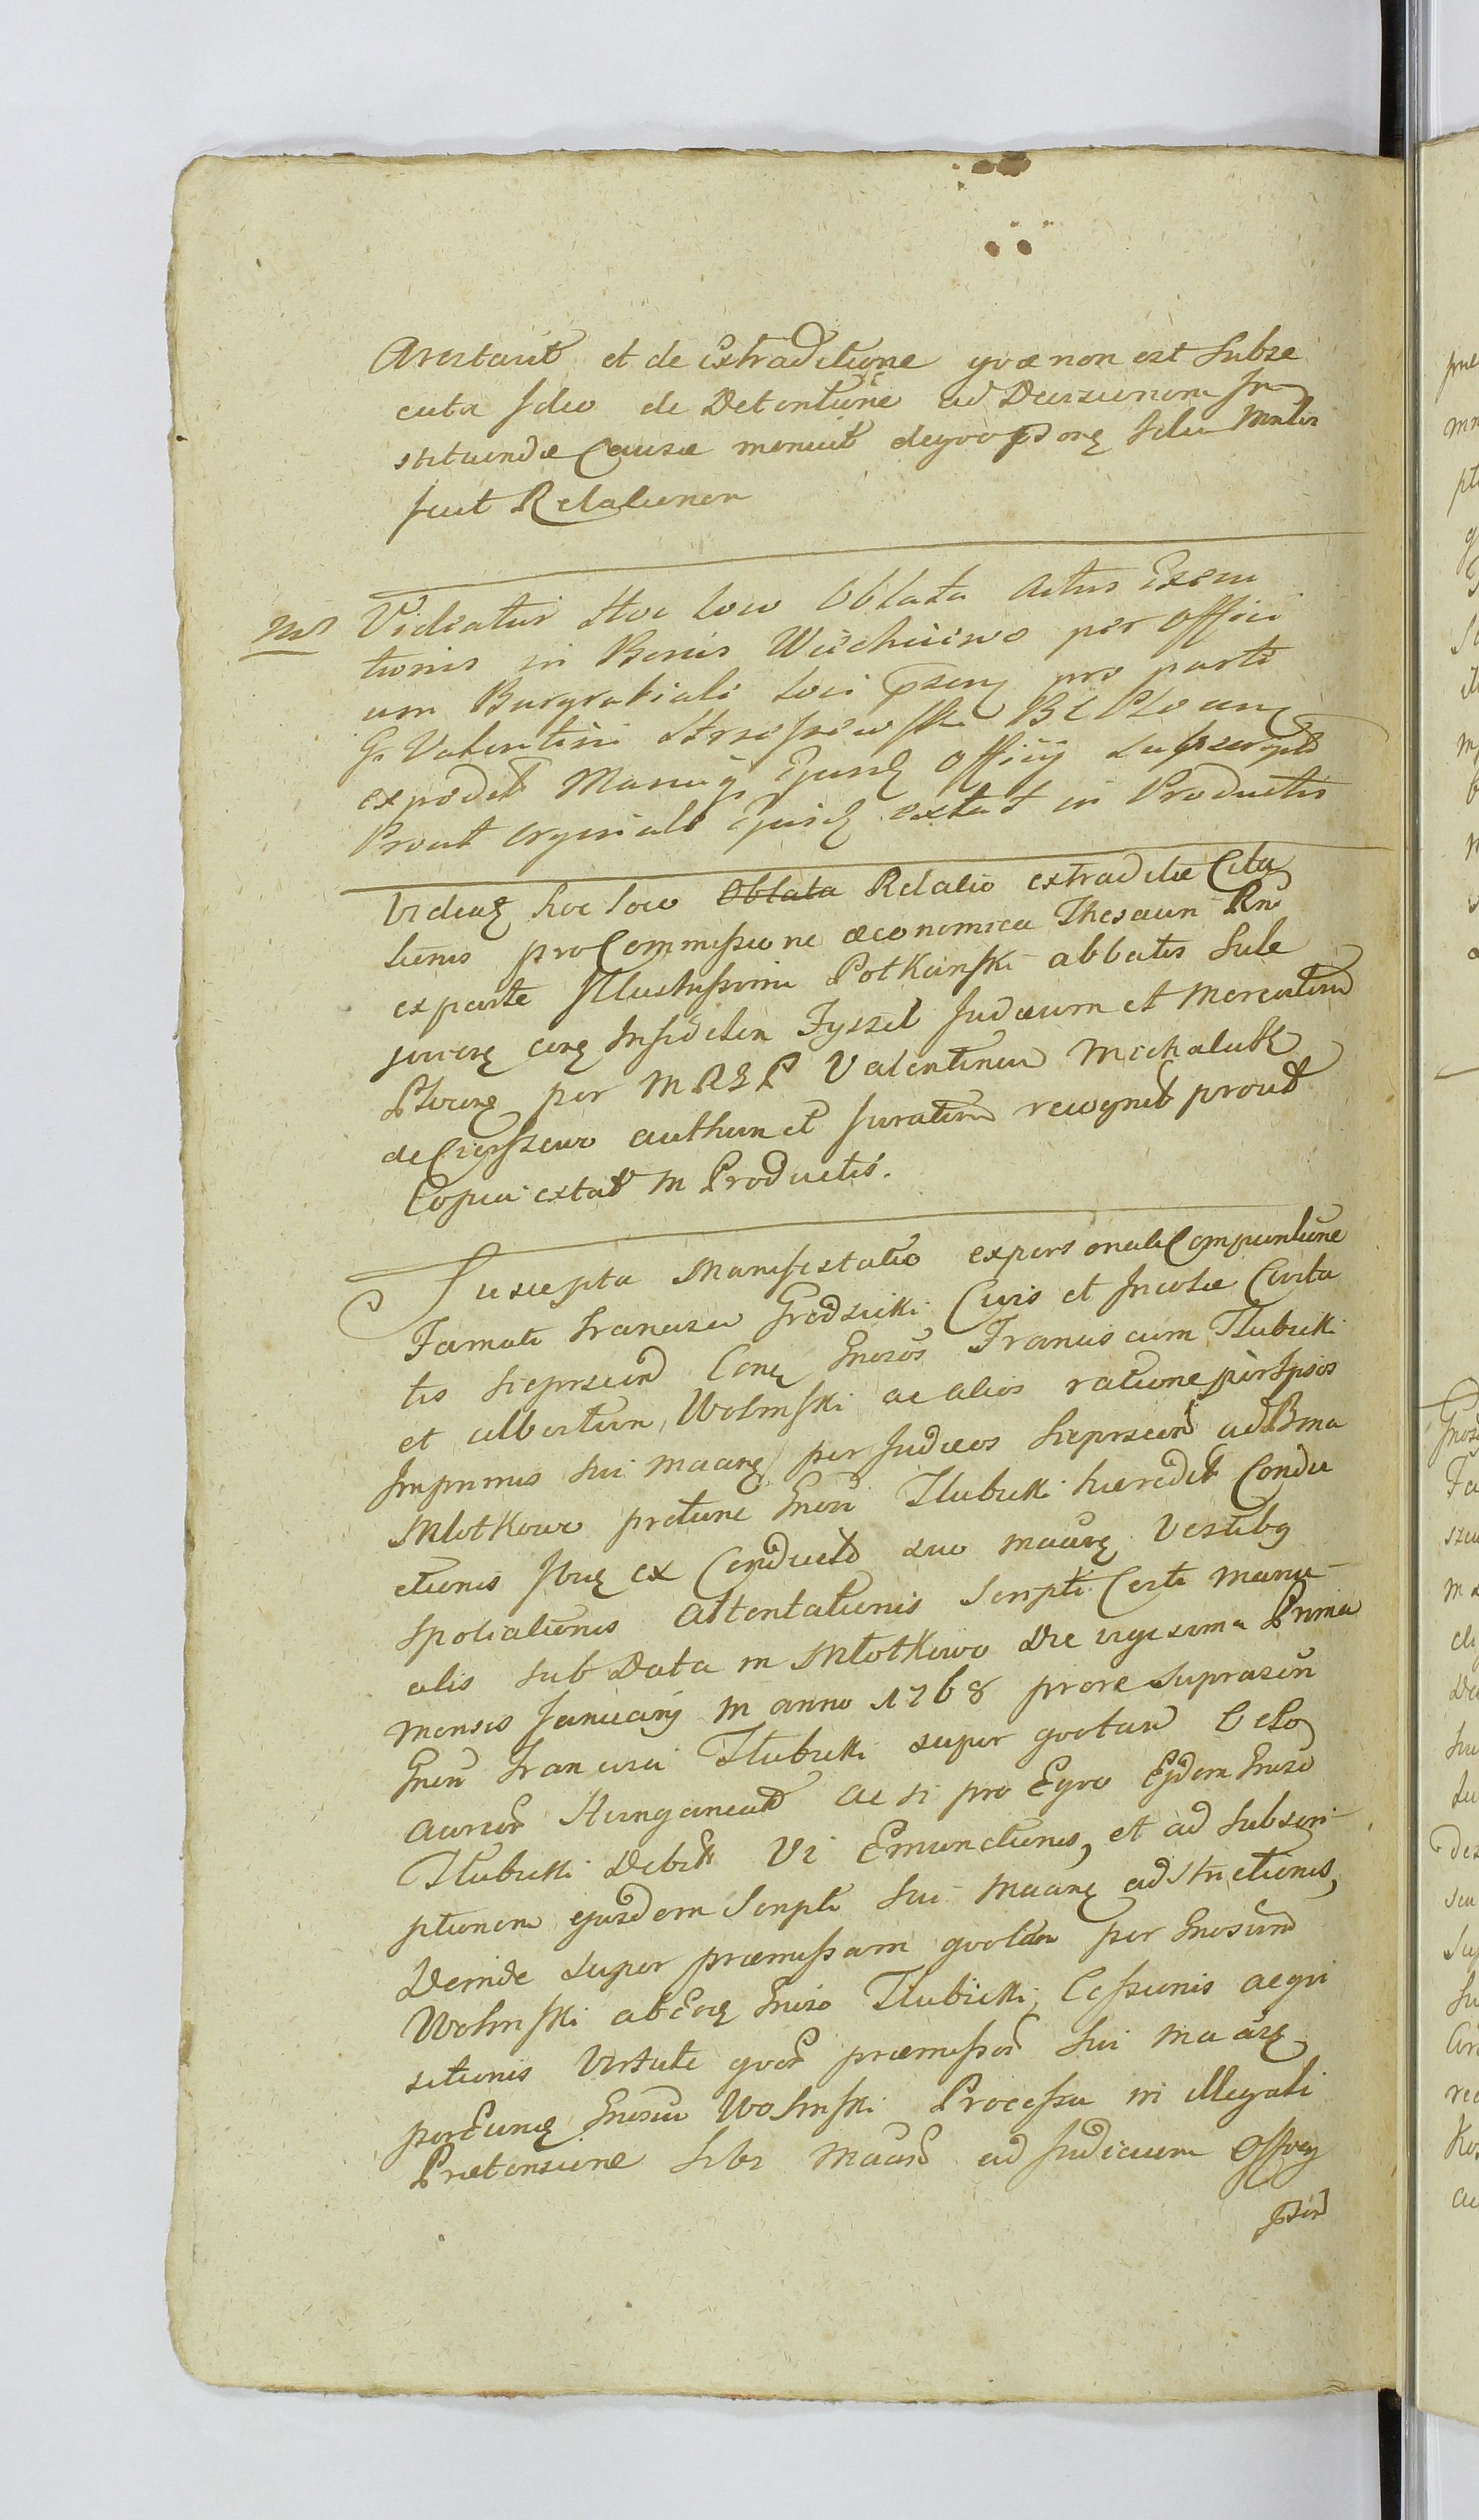 Arestavit et de extraditione qvae non est Subse
cuta Ideo de Detentione ad Decisionem In
stituendae Causae monuit deqvo
fecit Relationem
Videatur Hoc loco Oblata Actus Execu
tionis in Bonis Wiechuiewo per Offici
um Burgrabiale Loci pro parte
G. Valentini
expedit Manuq Ejusd Officij
Prout orginale Ejusd extat in Productis
Videaq hoc loco Oblata Relatio extraditae Cita
tionis pro Commissione oeconomica Thesauri Rni
ex parte Illustrissimi Potkanski abbatis Sule
joviens conq Infidelem Fyszel Judaeum et Mercatorem
Plocens per M R G P Valentinum Michalak
de authen et Juratum recognit prout
Copia extat in Productis.
Suscepta Manifestatio ex personali Comparitione
Famati Francisci Grodzicki Civis et Incolae Civita
tis Sieprscien Conq Gnosos Franciscum Tlubicki
et Albertum Wolinski ac alios ratione per Ipsos
Inprimis Sui maanq per Judaeos Sieprscien ad Bona
Mlotkowo pretunc Gnosi Tlubicki haeredit Condu
ctionis Ibiq ex Conduct suo maanq Vestibq
Spoliationis attentationis Scripti Certi manu
alis Sub Data in Mlotkowo Die vigesima Prima
mensis Januarij in anno 1768 pro re Suprascri
Gnosi Francisci Tlubicki super qvotam
aureor Hungarical ac si pro Eqvo Eidem Gnoso
Tlubicki Debit Vi Emunctionis, et ad Subscri
ptionem ejusdem Scripti Sui Maanq adstrictionis,
Deinde super praemissam qvotam per Gnosum
Wolinski ab Eoq Gnoso Tlubicki, Cessionis acqvi
sitionis Virtute qvor praemissor Sui maanq
per Eunq Gnosum Wolinski Processu in illegali
Praetensione Sibi maans ad Judicium Offoq